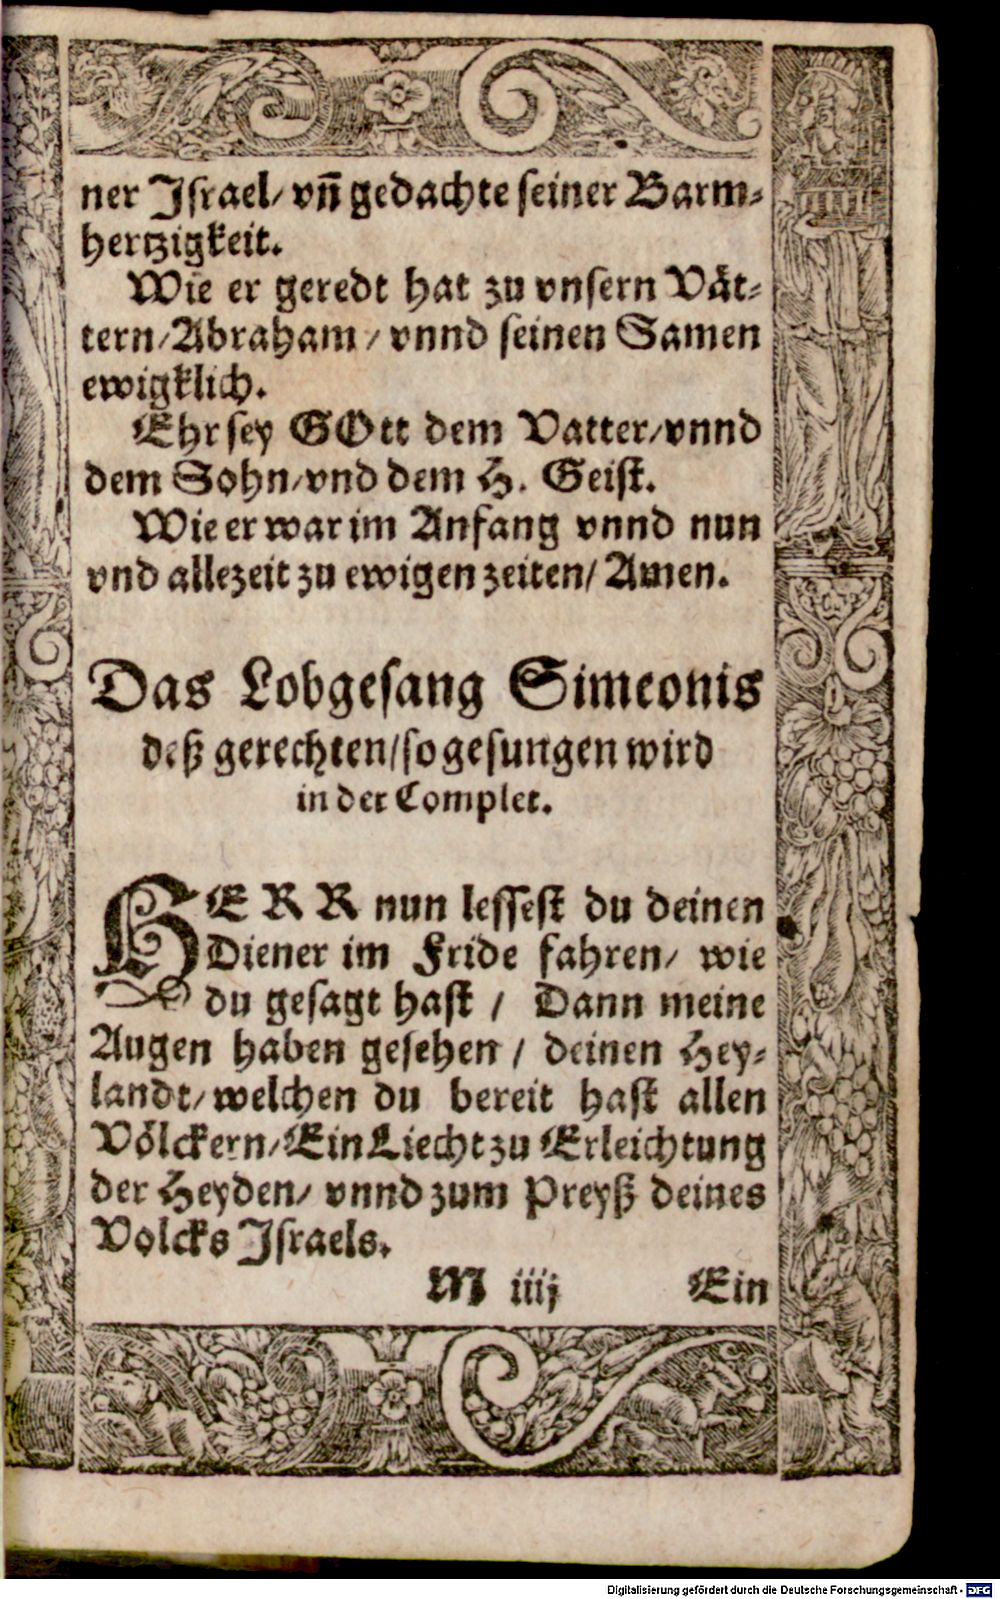 ner Israel/ vñ gedachte seiner Barm-
hertzigkeit.
Wie er geredt hat zu vnsern Vät-
tern/Abraham/ vnnd seinen Samen
ewigklich.
Ehr sey GOtt dem Vatter/vnnd
dem Sohn/vnd dem H. Geist.
Wie er war im Anfang vnnd nun
vnd allezeit zu ewigen zeiten/ Amen.
Das Lobgesang Simeonis
deß gerechten/so gesungen wird
in der Complet.
HERR nun lessest du deinen
Diener im Fride fahren/ wie
du gesagt hast / Dann meine
Augen haben gesehen / deinen Hey-
landt/welchen du bereit hast allen
Völckern/Ein Liecht zu Erleichtung
der Heyden/ vnnd zum Preyß deines
Volcks Israels.
M iiij Ein
Digitalisierung gefördert durch die Deutsche Forschungsgemeinschaft - DFG